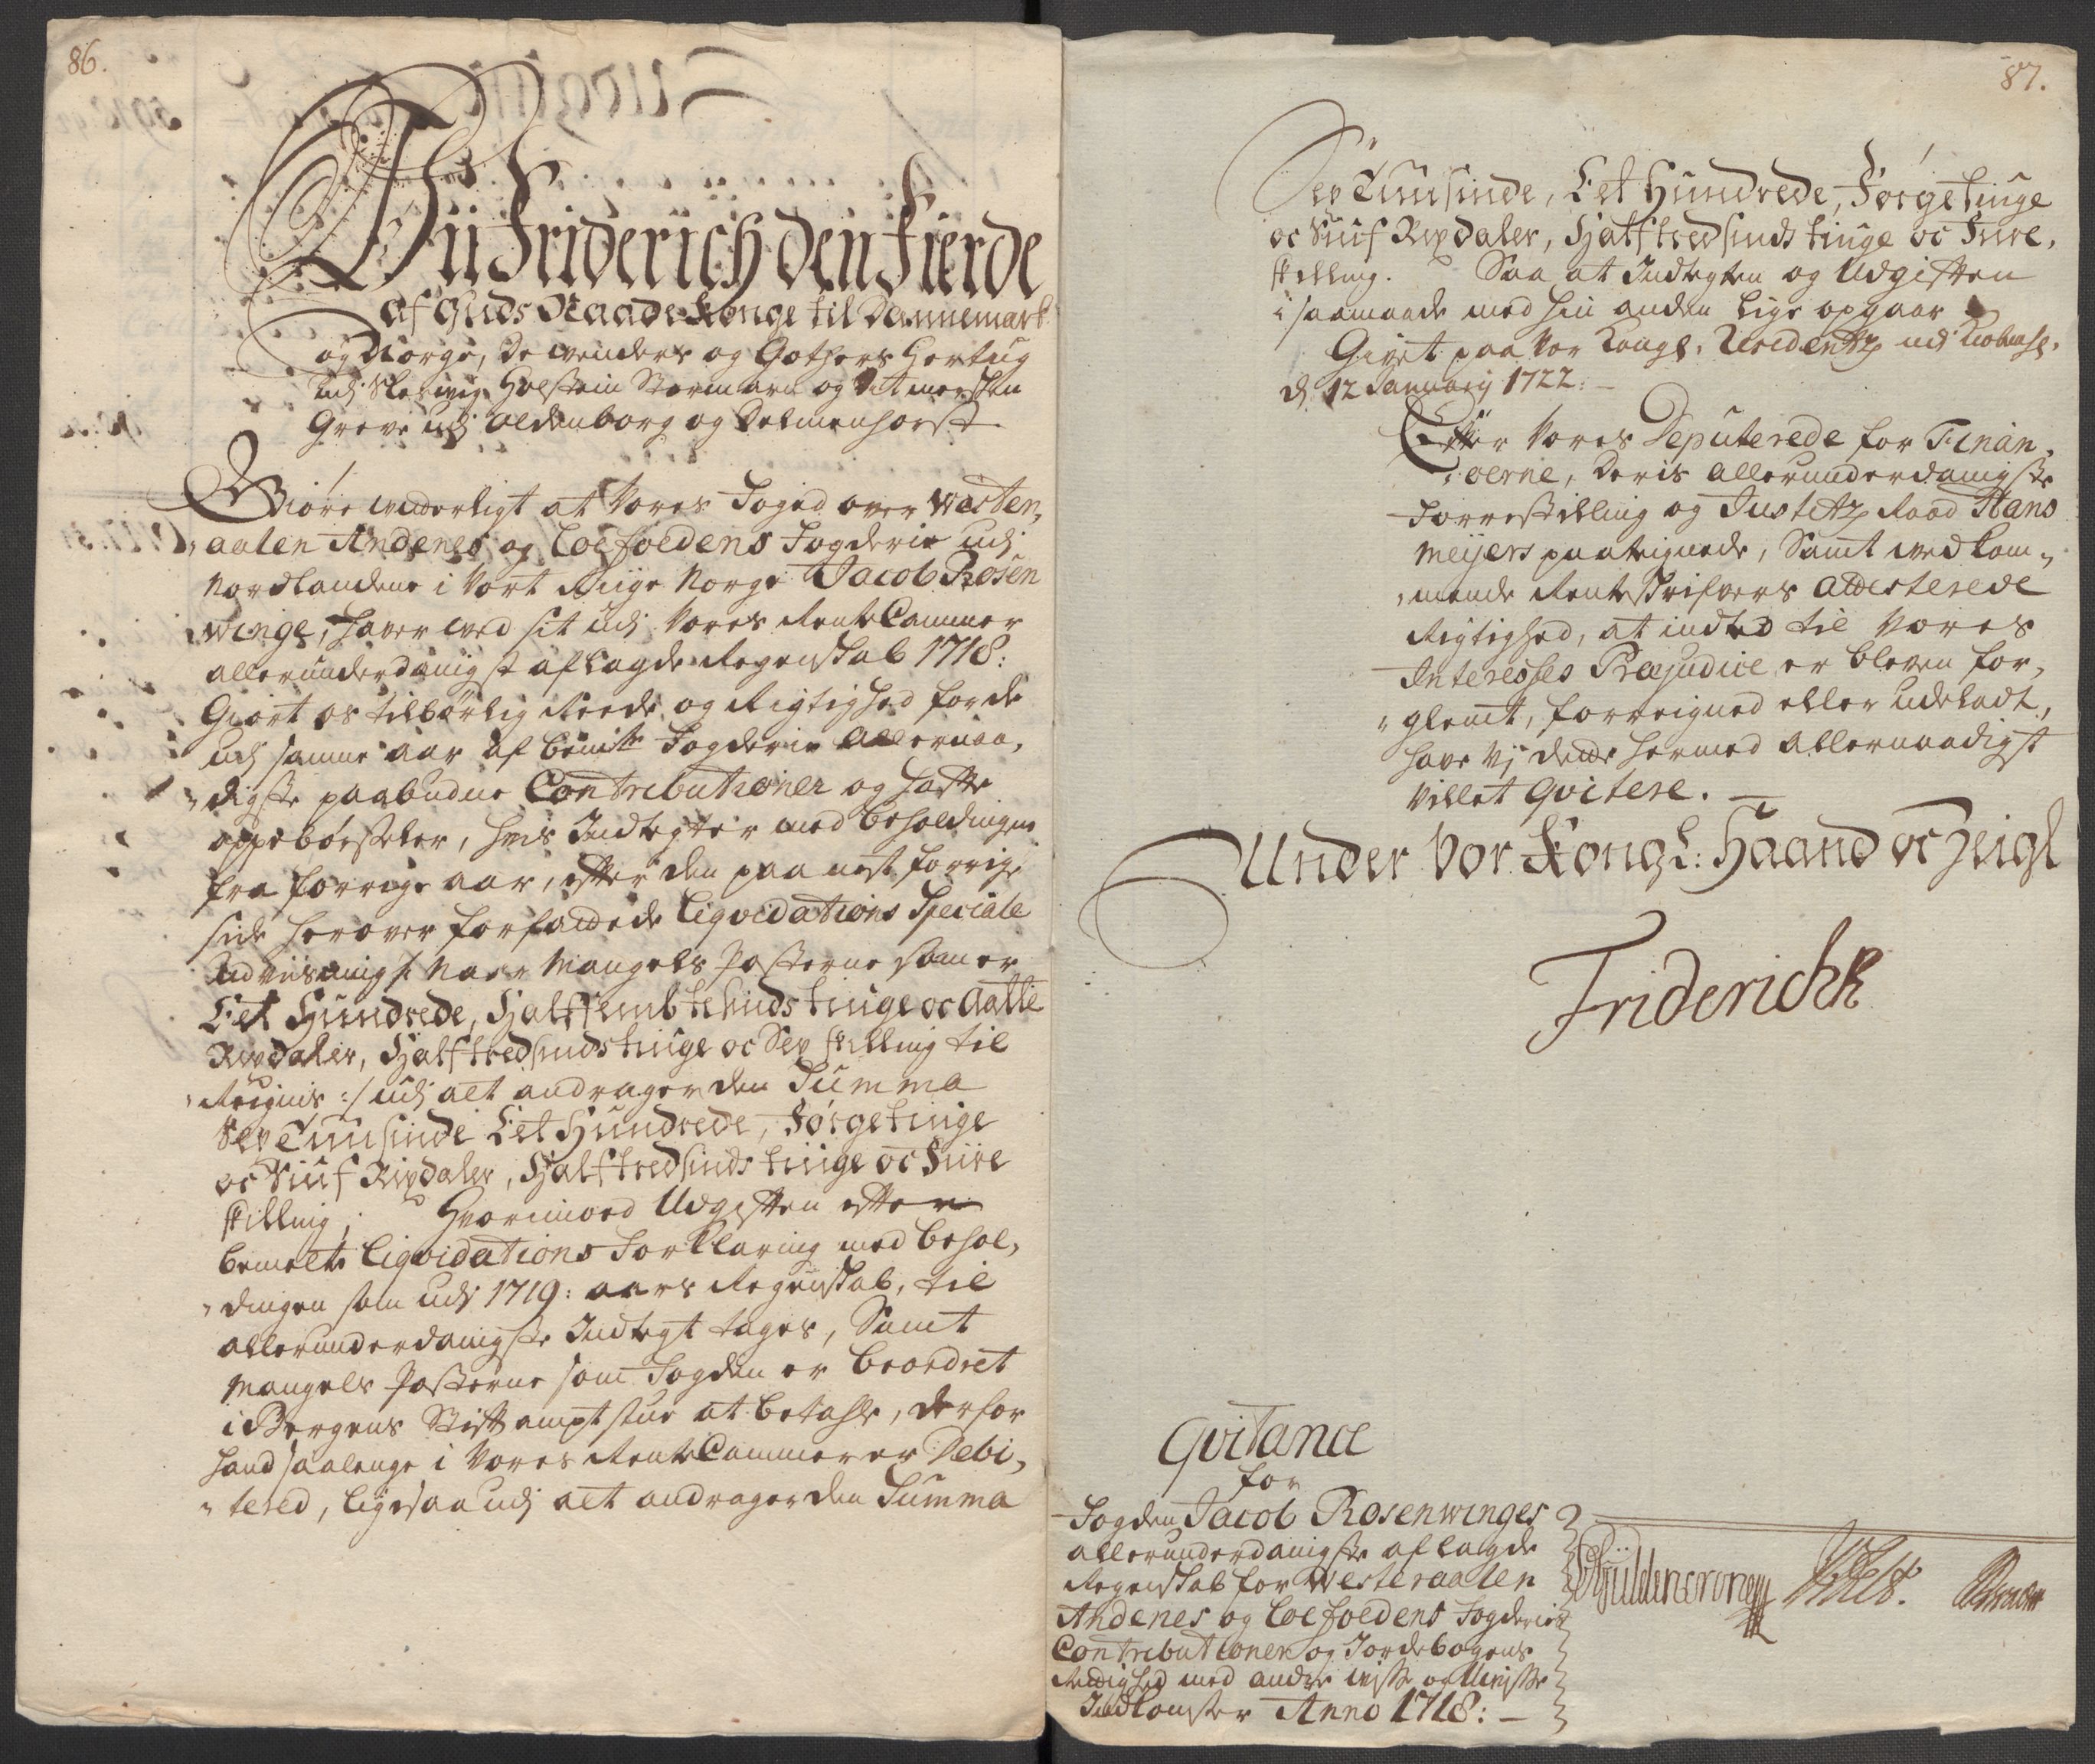 86.
Wii Friderich den Fierde
af Guds Naade Konge til Dannemark
og Norge, de Wenders og Gothers Hertug
udj Slesvig Holstein Stormarn og Ditmersken
Greve udj Oldenborg og Delmenhorst
Giøre witterligt at Vores Foged over Westen,
aalen Andenes og Loefoedens Fogderie udj
Nordlandene i Vort Riige Norge Jacob Rosen
winge, haver wed sit udj Vores Rente Cammer
allerunderdanigst aflagde Regenskab 1718:
Giort os tilbørlig Reede og Rigtighed for de
udj samme aar af bemte Fogderie Allernaa,
digste paabudne Contributioner og hafte
oppebørsteler, hvis Indtegter med beholdningen
fra forrige aar, efter den paa nest forrige
side herover forfattede Liqvidations Speciale
Udviisning /: Naar Mangels Posterne som er
Eet Hundrede, Halffembtesinds tiuge oc Aatte
Rixdaler, Halftredsinds tiuge oc Sex skilling til
Reignis :/ udj alt andrager den Summa
Sex Tuusinde Eet Hundrede, Førgetiuge
oc Siuf Rixdaler, Halftredsinds tiuge oc Fiire
skilling; Hvorimoed Udgiften efter
bemelte Liqvidations Forklaring med behol,
dingen som udj 1719: aars Regenskab, til
allerunderdanigste Indtegt tages, Samt
Mangels Posterne som Fogden er beordret
i Bergens Stiftamptstue at betahle, derfor
hand saalenge i Vores Rente Cammer er Debi,
tered, ligesaa udj alt andrager den Summa
87.
Sex Tuusinde, Eet Hundrede, Førgetiuge
oc Siuf Rixdaler, Halftredsinds tiuge oc Fiire,
skilling. Saa at Indtegten og Udgiften
i saamaade med hin anden lige opgaar
Givet paa Vor Kongl. Residentz udj Kiøbenh.
d. 12 January 1722: —
Efter Vores Deputerede for Finan,
cerne, deris allerunderdanigste
Forrestilling og Justitz Raad Hans
Meijers paateignede, Samt wedkom,
mende Renteskrifvers Attesterede
Rigtighed, at indted til Vores
Interesses Præjudice er bleven for,
glemt, forreigned eller udeladt,
have Vj dette hermed allernaadigst
villet Qvitere. —
Under Vor Kongl: Haand oc Zeigl
Friderich R
Qvitance
for
Fogden Jacob Rosenwinges
allerunderdanigste aflagde
Regenskab for Westeraalen
Andenes og Loefoedens Fogderies
Contributioner og Jordebogens
Rettighed med andre wisse og Uwisse
Indkomster Anno 1718: —
Güldencrone